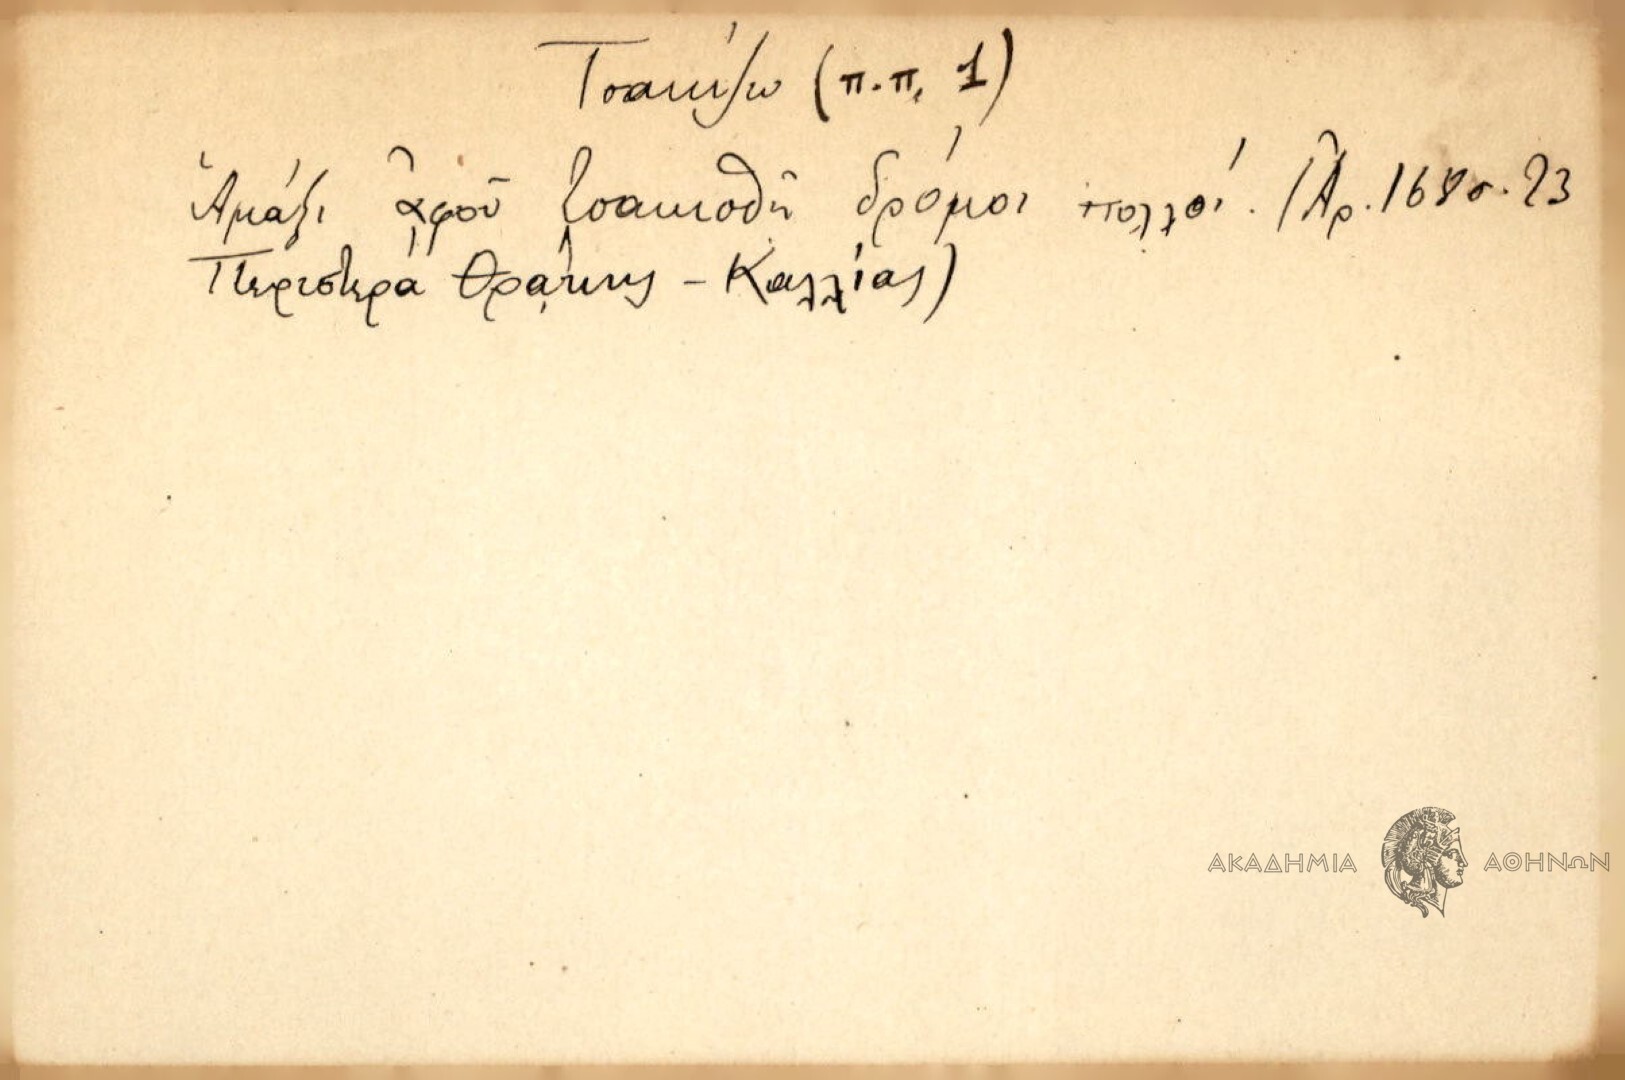 Τσακίζω (π.π. 1)
Ἁμάξι ἀφοῦ τσακισθῇ δρόμοι πολλοί. (Ἀρ. 168 σ. 23
Περιστερὰ Θράκης – Καλλίας)
ΑΚΑΔΗΜΙΑ ΑΘΗΝΩΝ